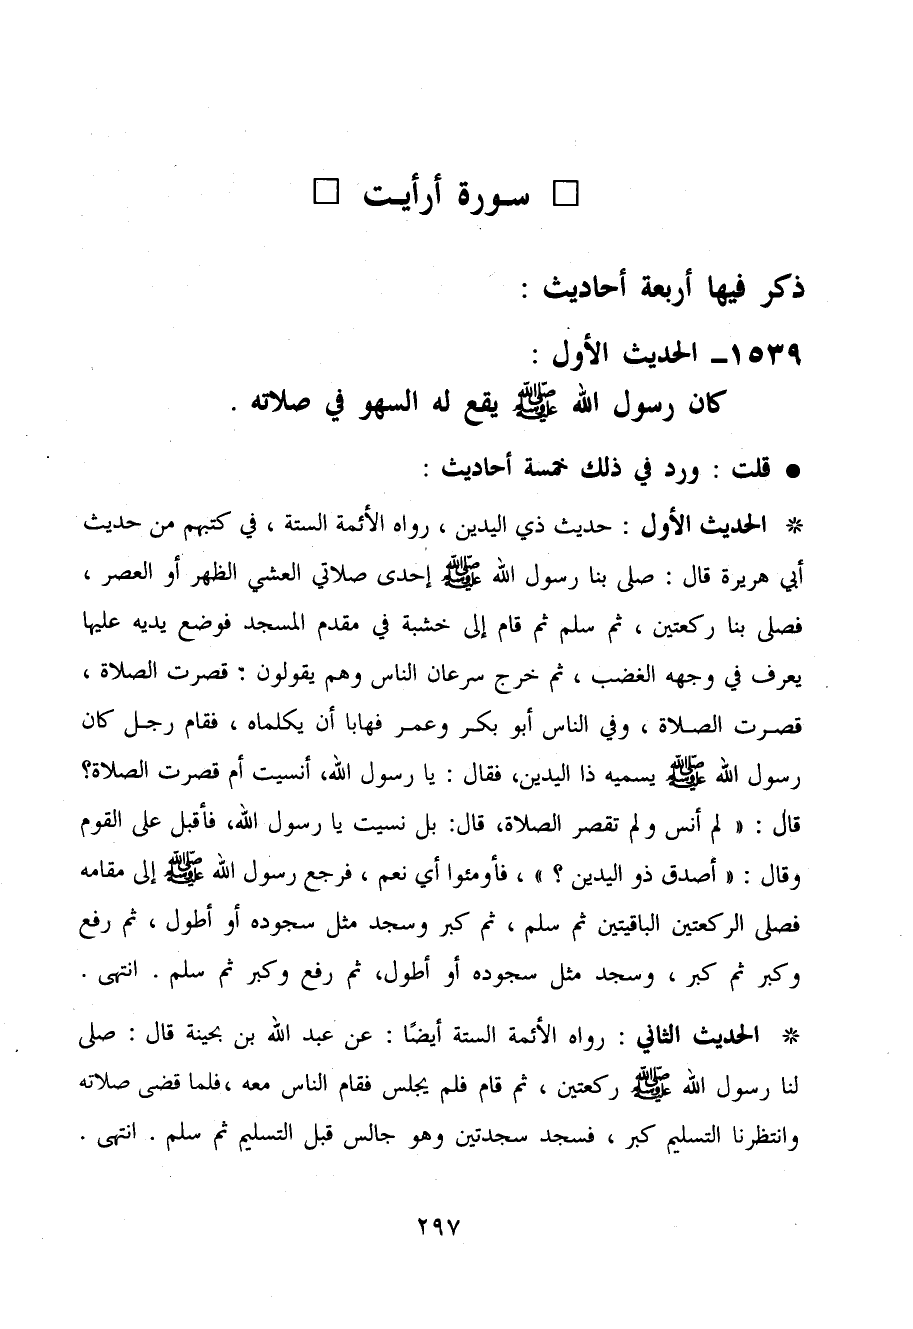 □ سورة أرأيت □
ذكر فيها أربعة أحاديث :
١٥٣٩ـ الحديث الأول :
كان رسول الله ﷺ يقع له السهو في صلاته .
● قلت : ورد في ذلك خمسة أحاديث :
* الحديث الأول : حديث ذي اليدين ، رواه الأئمة الستة ، في كتبهم من حديث
أبي هريرة قال : صلى بنا رسول الله ﷺ إحدى صلاتي العشي الظهر أو العصر ،
فصلى بنا ركعتين ، ثم سلم ثم قام إلى خشبة في مقدم المسجد فوضع يديه عليها
يعرف في وجهه الغضب ، ثم خرج سرعان الناس وهم يقولون : قصرت الصلاة ،
قصرت الصلاة ، وفي الناس أبو بكر وعمر فهابا أن يكلماه ، فقام رجل كان
رسول الله ﷺ يسميه ذا اليدين، فقال : يا رسول الله، أنسيت أم قصرت الصلاة؟
قال : « لم أنس ولم تقصر الصلاة، قال: بل نسيت يا رسول الله، فأقبل على القوم
وقال : « أصدق ذو اليدين ؟ » ، فأومئوا أي نعم ، فرجع رسول الله ﷺ إلى مقامه
فصلى الركعتين الباقيتين ثم سلم ، ثم كبر وسجد مثل سجوده أو أطول ، ثم رفع
وكبر ثم كبر ، وسجد مثل سجوده أو أطول، ثم رفع وكبر ثم سلم . انتهى .
* الحديث الثاني : رواه الأئمة الستة أيضًا : عن عبد الله بن بحينة قال : صلى
لنا رسول الله ﷺ ركعتين ، ثم قام فلم يجلس فقام الناس معه ،فلما قضى صلاته
وانتظرنا التسليم كبر ، فسجد سجدتين وهو جالس قبل التسليم ثم سلم . انتهى .
٢٩٧